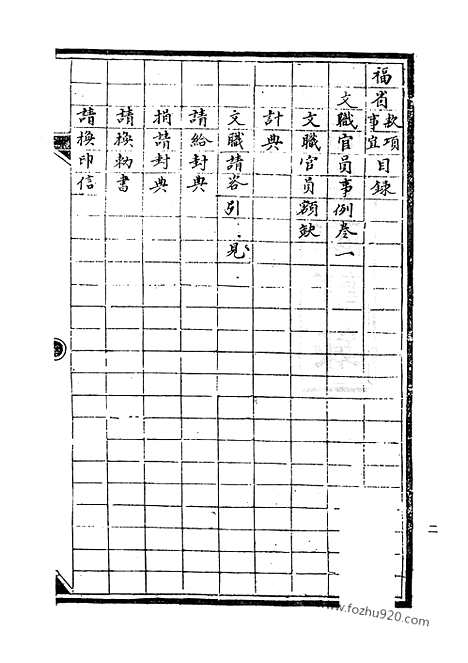 福省款項事宜目錄
文職官員事例卷一
文職官員額缺
計典
文職請咨引見
請給封典
捐請封典
請換勅書
請換印信
二
www.fozhu920.com